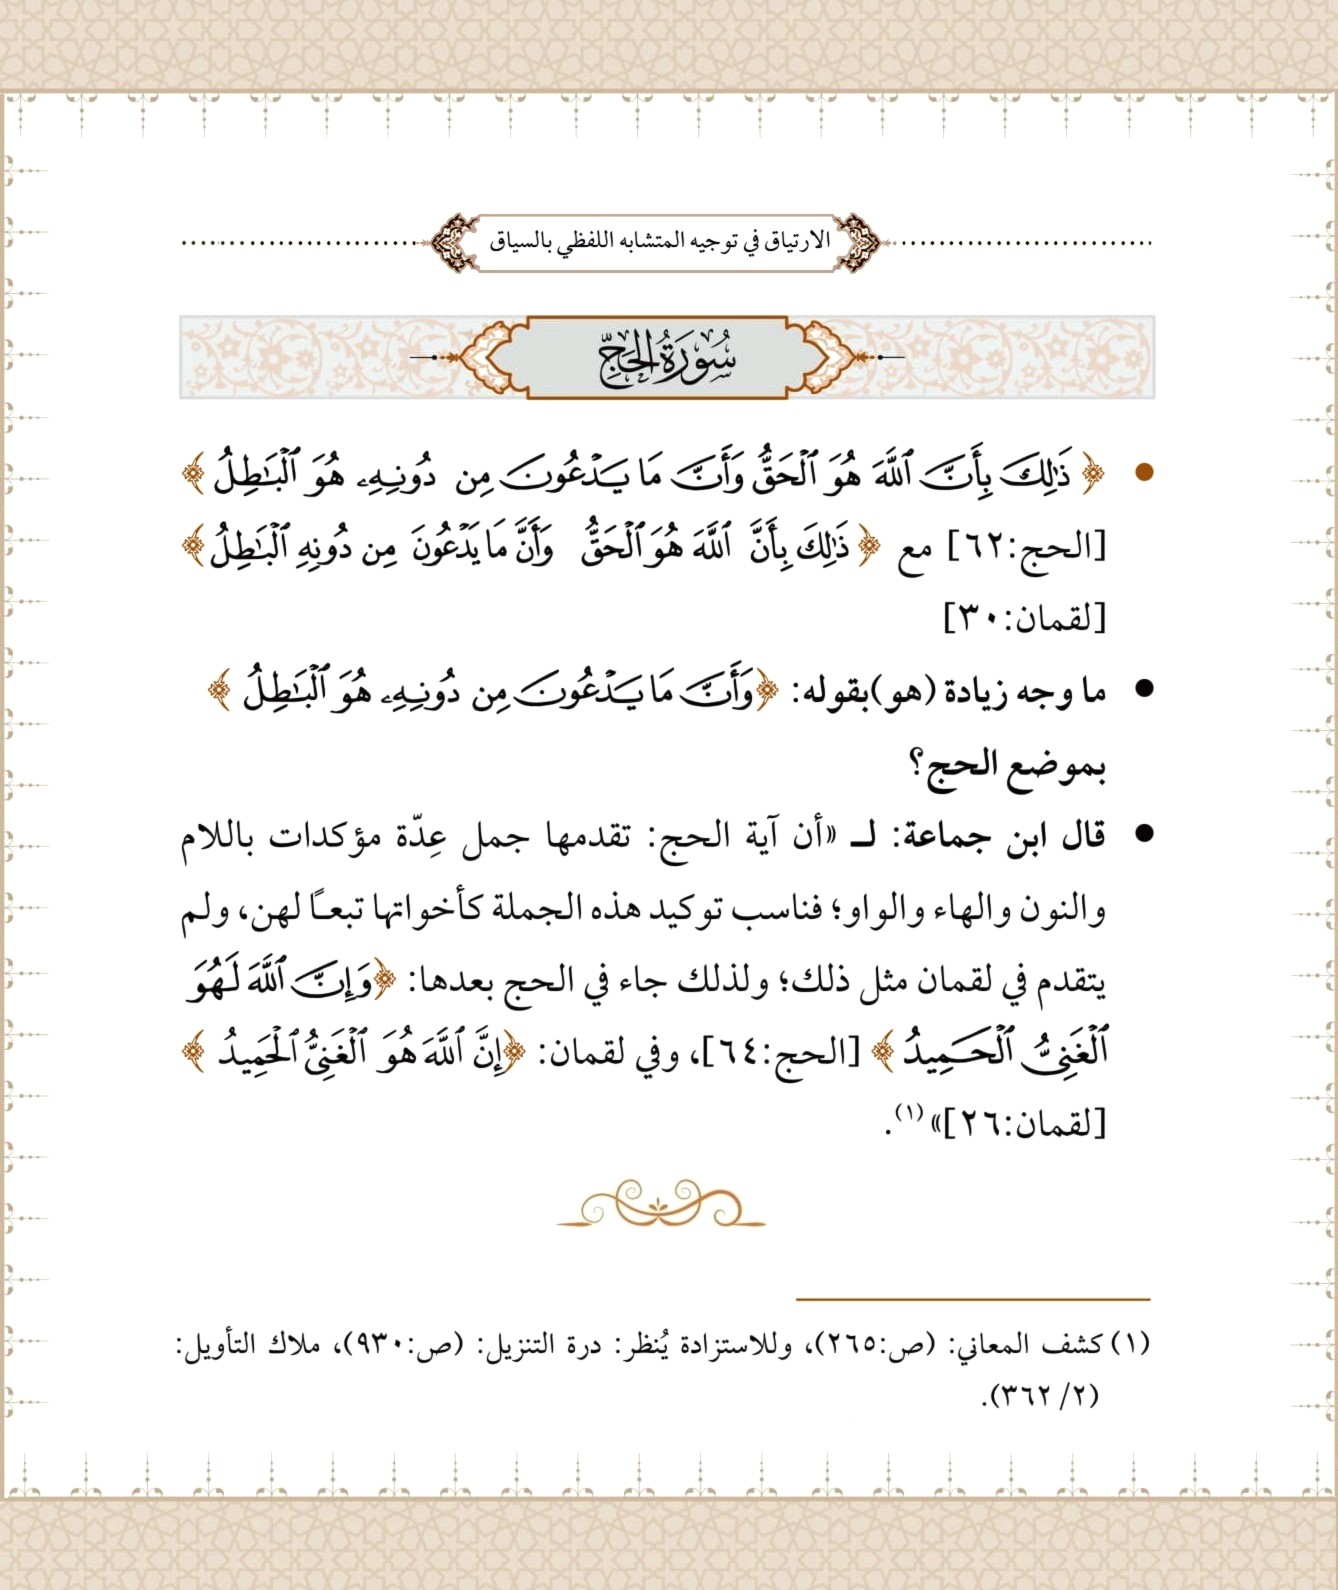 الارتياق في توجيه المتشابه اللفظي بالسياق
سُورَةُ الحَجِّ
• ﴿ ذَٰلِكَ بِأَنَّ ٱللَّهَ هُوَ ٱلْحَقُّ وَأَنَّ مَا يَدْعُونَ مِن دُونِهِۦ هُوَ ٱلْبَٰطِلُ ﴾
[الحج:٦٢] مع ﴿ ذَٰلِكَ بِأَنَّ ٱللَّهَ هُوَ ٱلْحَقُّ وَأَنَّ مَا يَدْعُونَ مِن دُونِهِ ٱلْبَٰطِلُ ﴾
[لقمان:٣٠]
• ما وجه زيادة (هو)بقوله: ﴿وَأَنَّ مَا يَدْعُونَ مِن دُونِهِۦ هُوَ ٱلْبَٰطِلُ ﴾
بموضع الحج؟
• قال ابن جماعة: لـ «أن آية الحج: تقدمها جمل عِدّة مؤكدات باللام
والنون والهاء والواو؛ فناسب توكيد هذه الجملة كأخواتها تبعًا لهن، ولم
يتقدم في لقمان مثل ذلك؛ ولذلك جاء في الحج بعدها: ﴿وَإِنَّ ٱللَّهَ لَهُوَ
ٱلْغَنِىُّ ٱلْحَمِيدُ ﴾ [الحج:٦٤]، وفي لقمان: ﴿إِنَّ ٱللَّهَ هُوَ ٱلْغَنِىُّ ٱلْحَمِيدُ ﴾
[لقمان:٢٦]»(١).
(١) كشف المعاني: (ص:٢٦٥)، وللاستزادة يُنظر: درة التنزيل: (ص:٩٣٠)، ملاك التأويل:
(٢/ ٣٦٢).